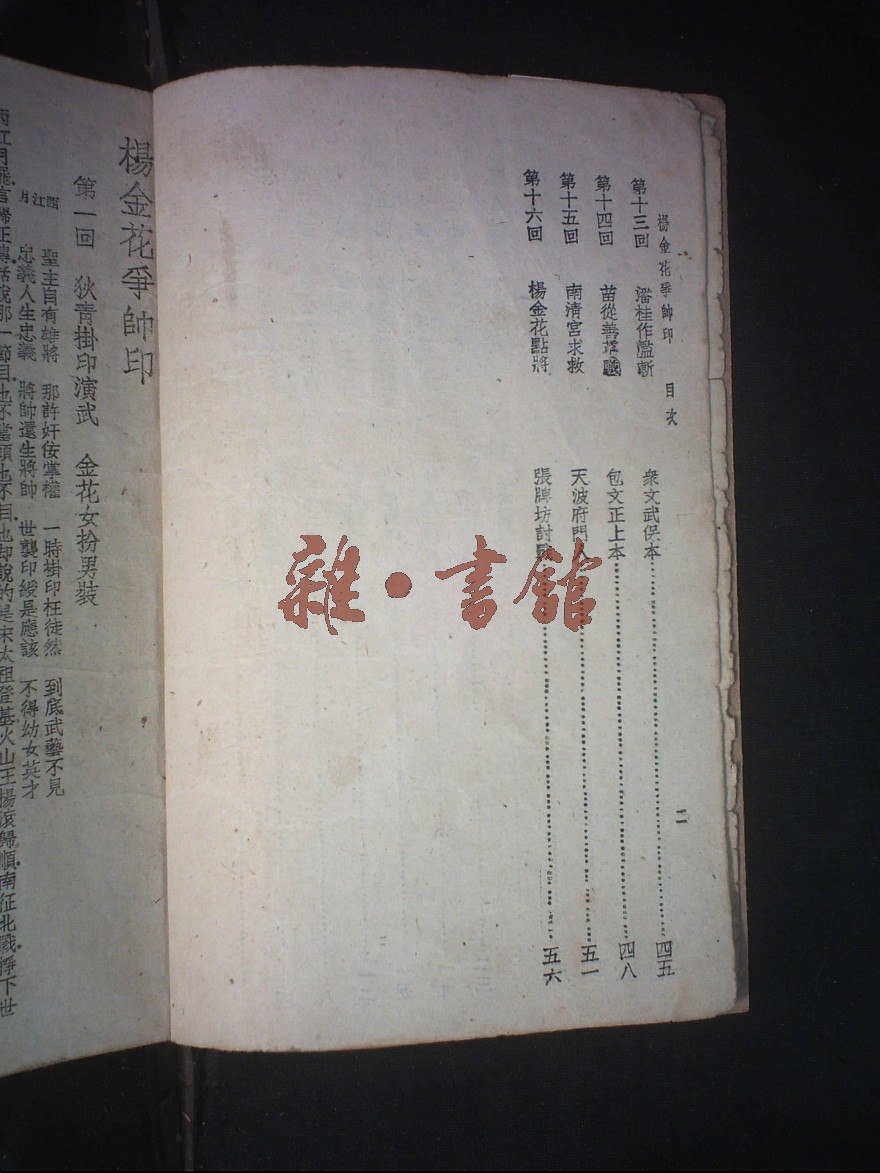 楊金花爭帥印 目次 二
第十三回 潘桂作監斬 衆文武保本 四五
第十四回 苗從善誆 包文正上本 四八
第十五回 南清宮求救 天波府門 五一
第十六回 楊金花點將 張牌坊討戰 五六
雜·書館
楊金花爭帥印
第一回 狄青掛印演武 金花女扮男裝
西江月
聖主自有雄將 那許奸佞掌權 一時掛印枉徒然 到底武藝不見
忠義人生忠義 將帥還生將帥 世襲印綬是應該 不得幼女英才
西江月罷言歸正傳話說那一節目也不當頭也不目也却說的是宋太祖登基火山王楊滾歸順南征北戰掙下世